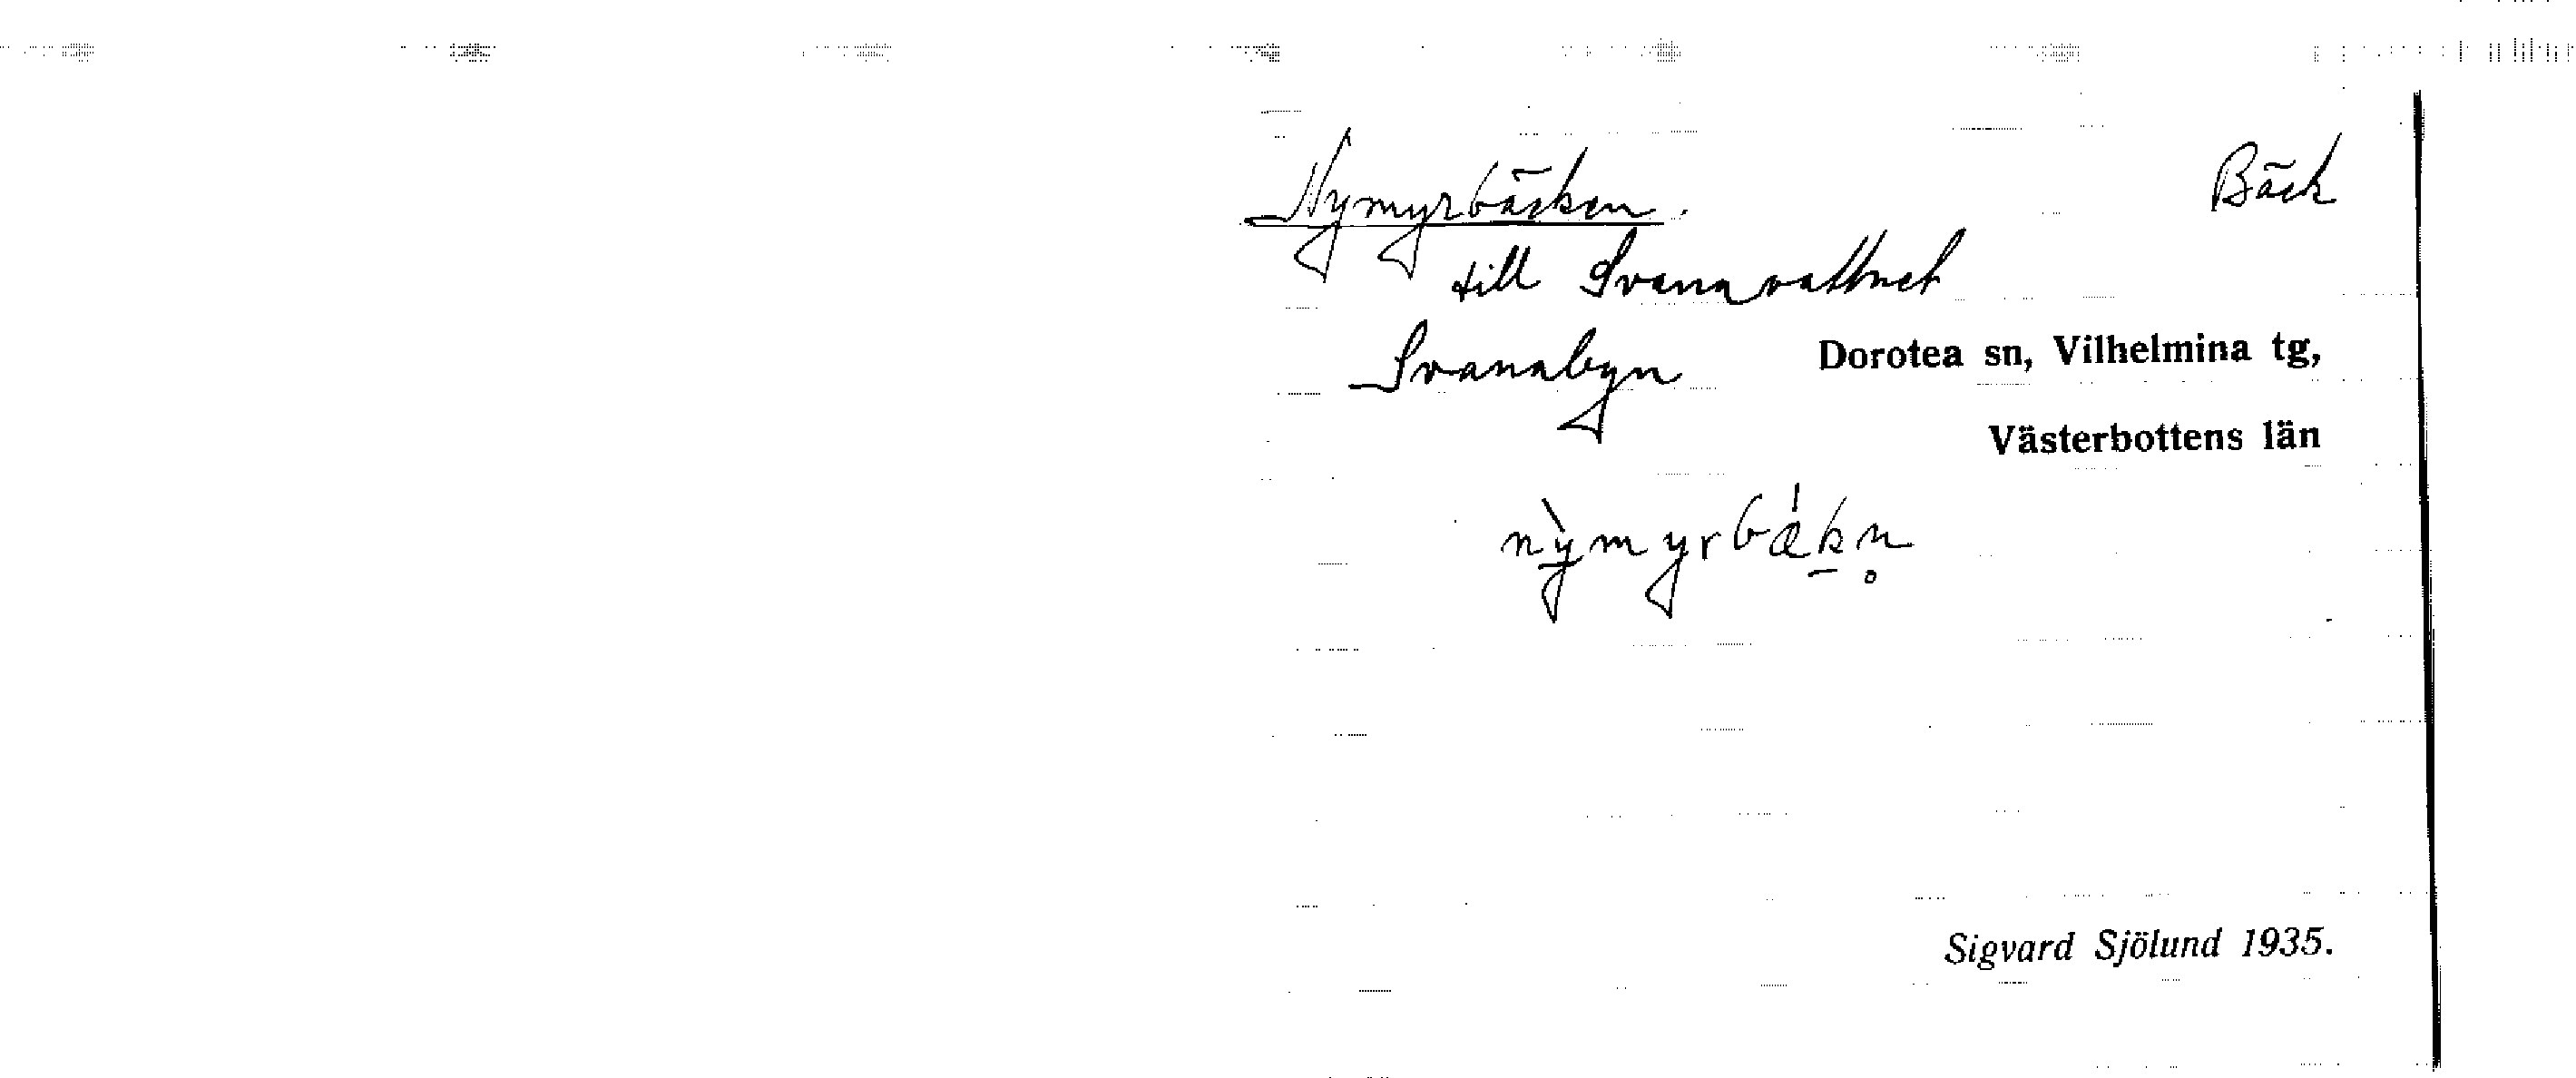 Nymyrbäcken.
Bäck
till Svanavattnet
Svanabyn
Dorotea sn, Vilhelmina tg,
Västerbottens län
nỳ̱myrbǽḵn̥
Sigvard Sjölund 1935.